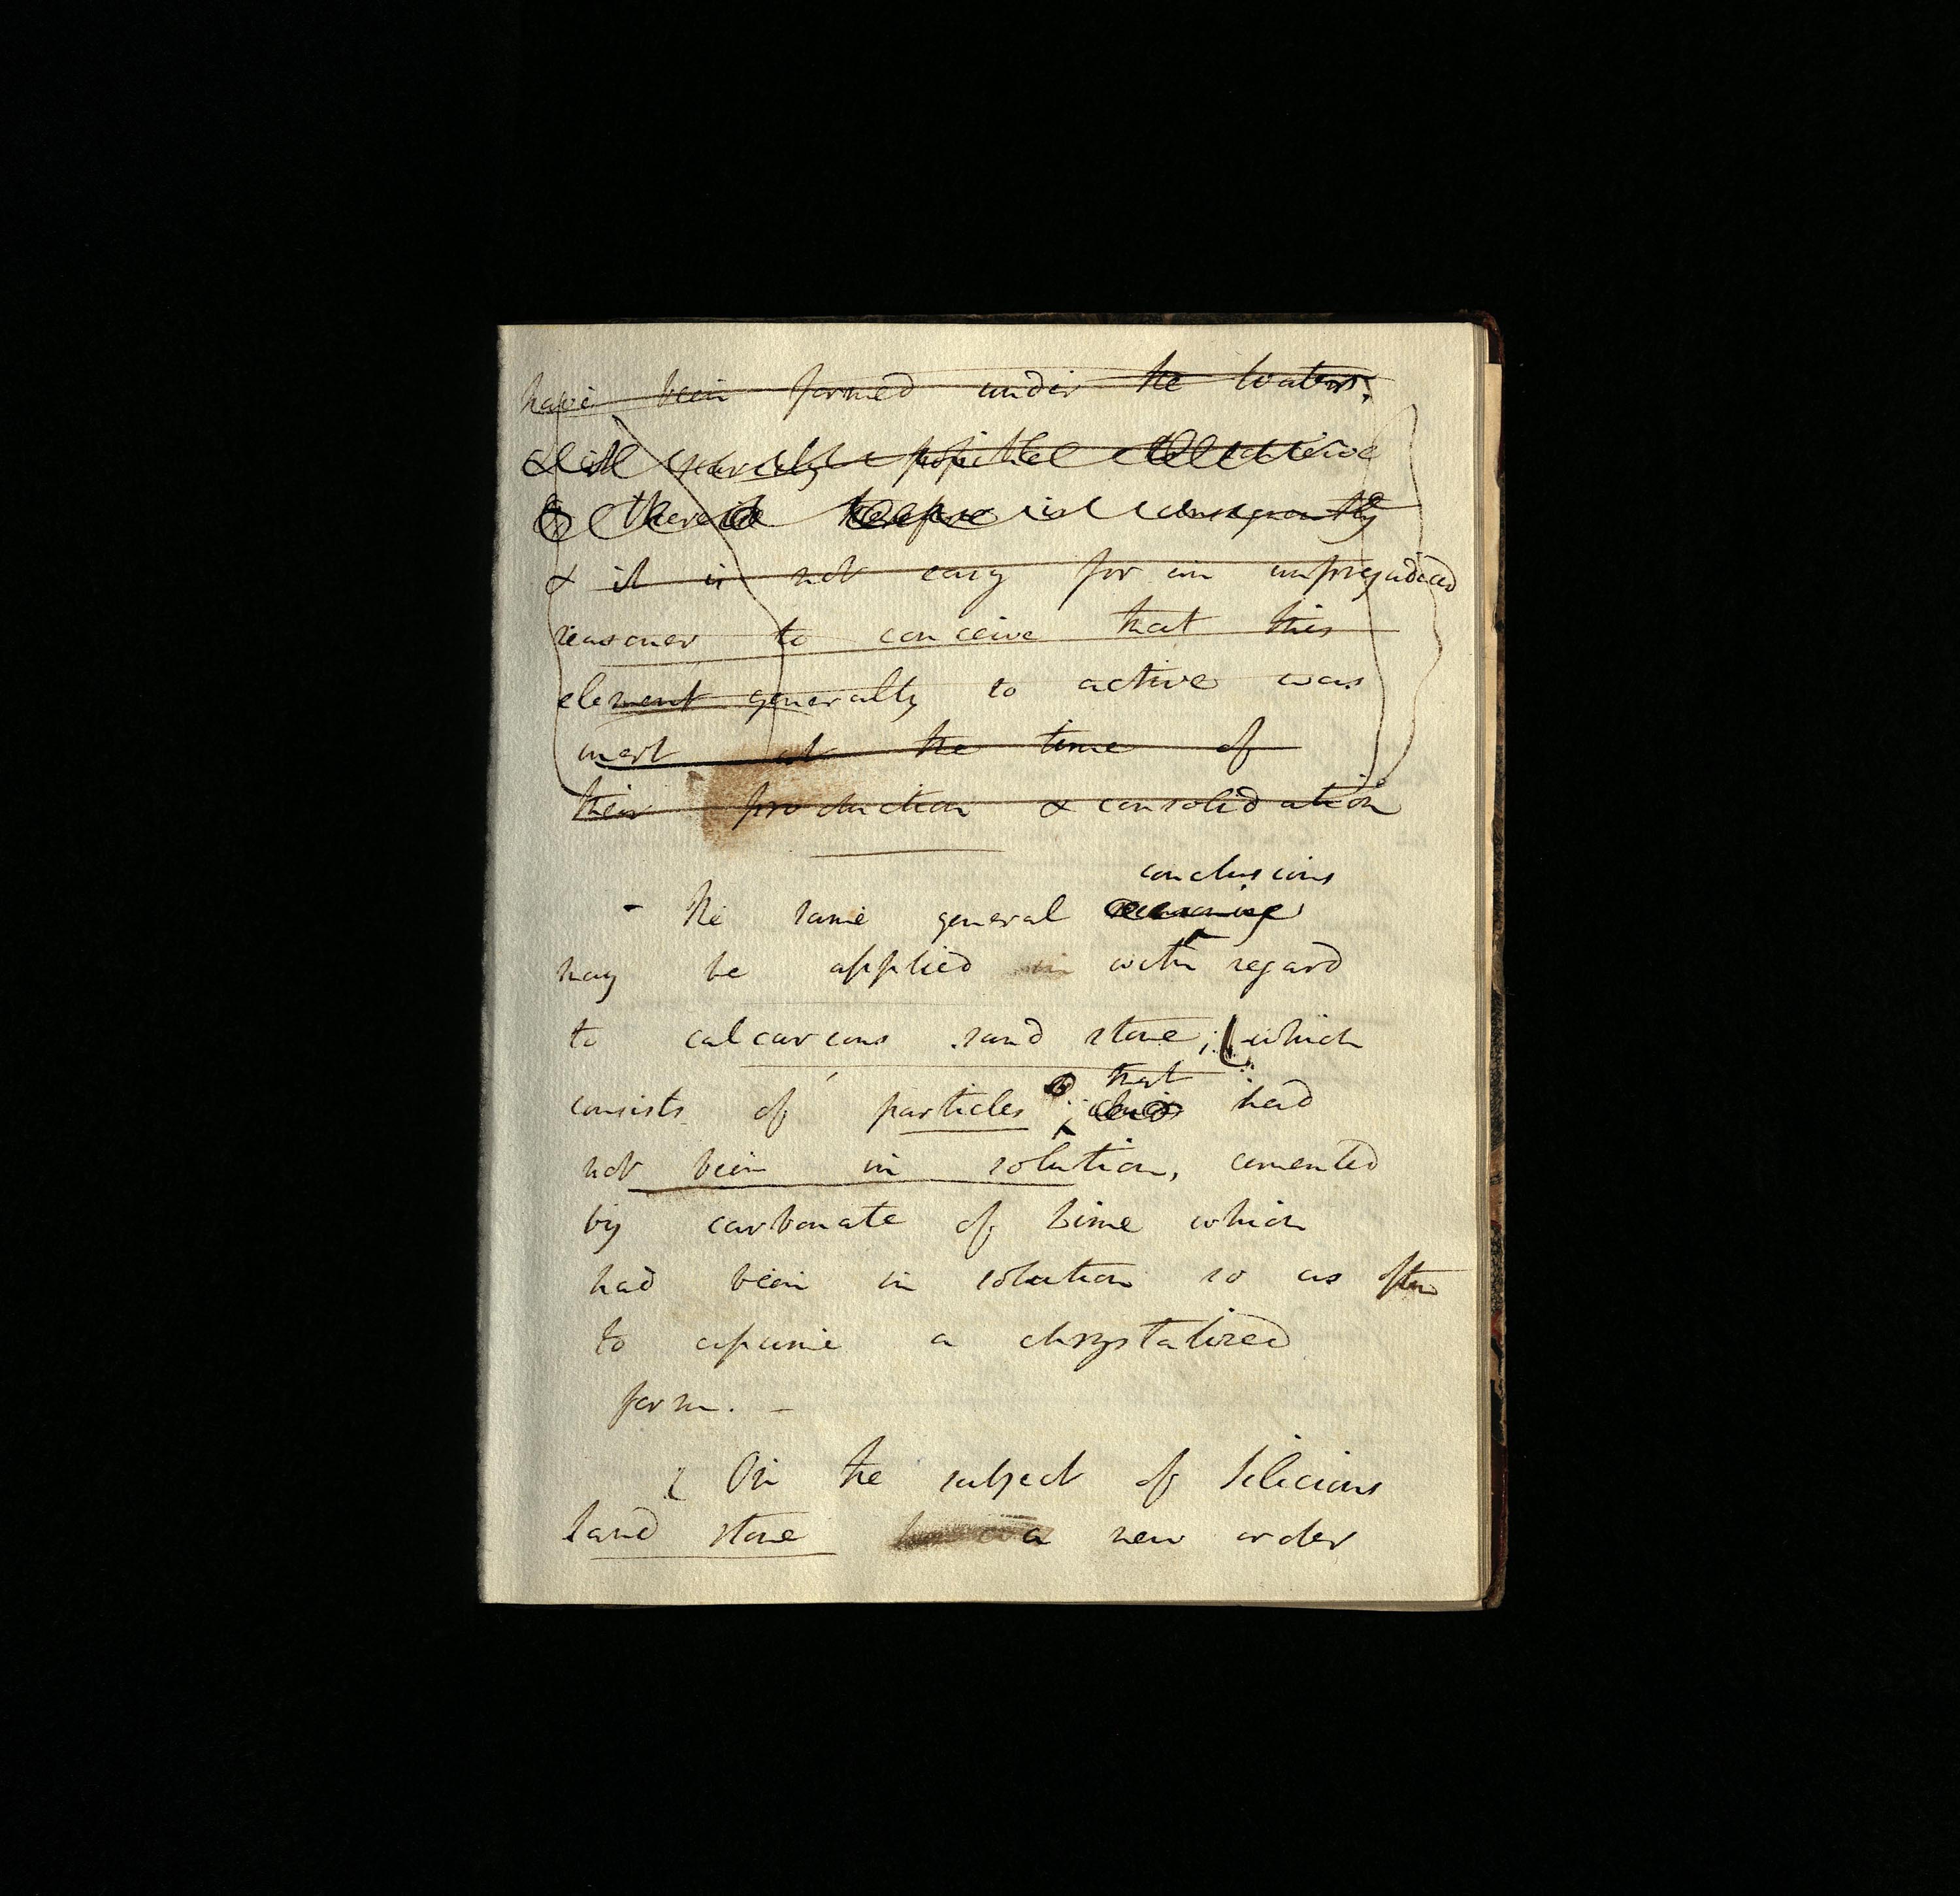 have been formed under the waters.
& it scarcely possible
& there is therefore is consequently
& it is not easy for an unprejudiced
reasoner to conceive that this
element generally so active was
inert at the time of
their production & consolidation
conclusions
- The same general reasoning
may be applied in with regard
to calcareous sand stone; which
that
consists of particles ; had
not been in solution, cemented
by carbonate of Lime which
had been in solution so as often
to assume a chrystalized
form. -
On the subject of Silicious
sand stone a new order